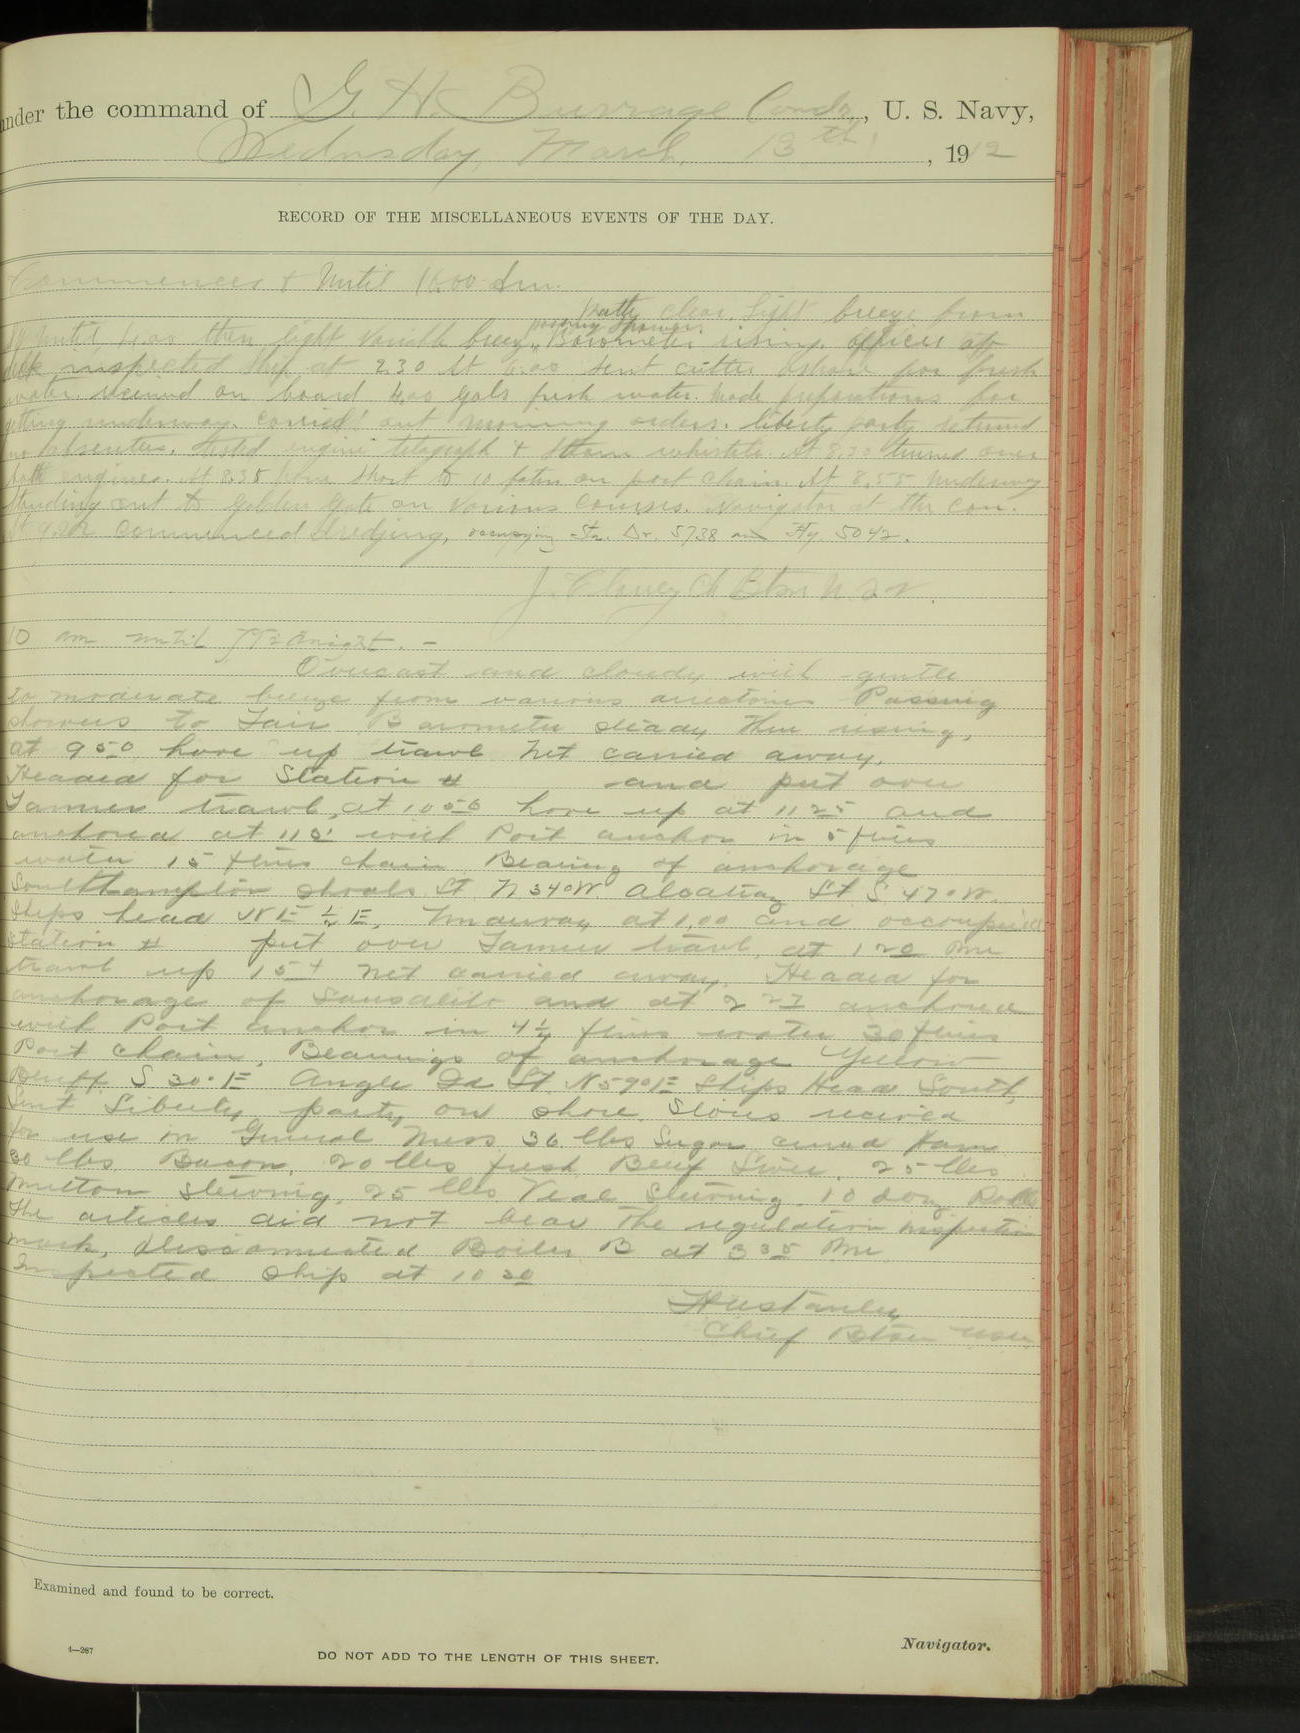 under the command of G. H. Burrage Comdr, U. S. Navy,
Wednesday, March, 13th, 1912
RECORD OF THE MISCELLANEOUS EVENTS OF THE DAY.
Commences & Until 10.00 Am.
Partly clear. Light breeze from
until 4.00 then light variable breeze, passing showers. Barometer rising. Officer of
deck inspected ship at 2.30 At 6.00 sent cutter ashore for fresh
water. received on board 400 gals fresh water. Made preparations for
getting underway. Carried out morning orders. liberty party returned
no absentees. tested engine telegraph & steam whistle. At 8.30 turned over
both engines. At 8.35 hove short to 10 fatms on port chain. At 8.55 underway
standing out to Golden Gate on various courses. Navigator at the con.
commenced dredging, occupying Sta. Dr. 5738 and Hy. 5042.
10 am until Midnight. -
Overcast and cloudy with gentle
to moderate breeze from various directions Passing
showers to Fair Barometer steady then rising,
at 9 50 hove up trawl net carried away.
Headed for Station # and put over
Tanner trawl, at 10 50 hove up at 11 25 and
anchored at 11 51 with Port anchor in 5 fms
water 15 fms chain Bearing of anchorage
Southampton shoals Lt. N 34° W. Alcatraz Lt S 47° W.
Ships head NE ½ E, Underway at 1,00 and occupied
station # put over Tanner trawl, at 1 20 Pm
trawl up 1 54 Net carried away. Headed for
anchorage of Sausalito and at 2 27 anchored
with Port anchor in 4½ fms water 30 fms
Port chain, Bearings of anchorage Yellow
Bluff S 30° E Angle Id Lt N 59° E Ships Head South,
Sent Liberty party on shore. Stores received
for use in General Mess 36 lbs Sugar cured Ham
30 lbs Bacon, 20 lbs fresh Beef Liver, 25 lbs
Mutton Stewing, 25 lbs Veal Stewing, 10 doz Rolls
the articles did not bear the regulation inspection
mark, Disconnected Boiler B at 3 35 Pm
Inspected ship at 10 30
Hustanley
Chief Btsn USN
Examined and found to be correct.
4—267
DO NOT ADD TO THE LENGTH OF THIS SHEET.
Navigator.